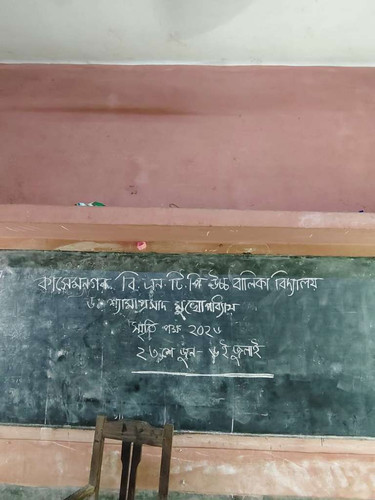 কাসেমনগর বি. এন. টি. পি. উচ্চ বালিকা বিদ্যালয়
ড. শ্যামাপ্রসাদ মুখোপাধ্যায়
স্মৃতি পক্ষ ২০২৬
২৩শে জুন - ৬ই জুলাই